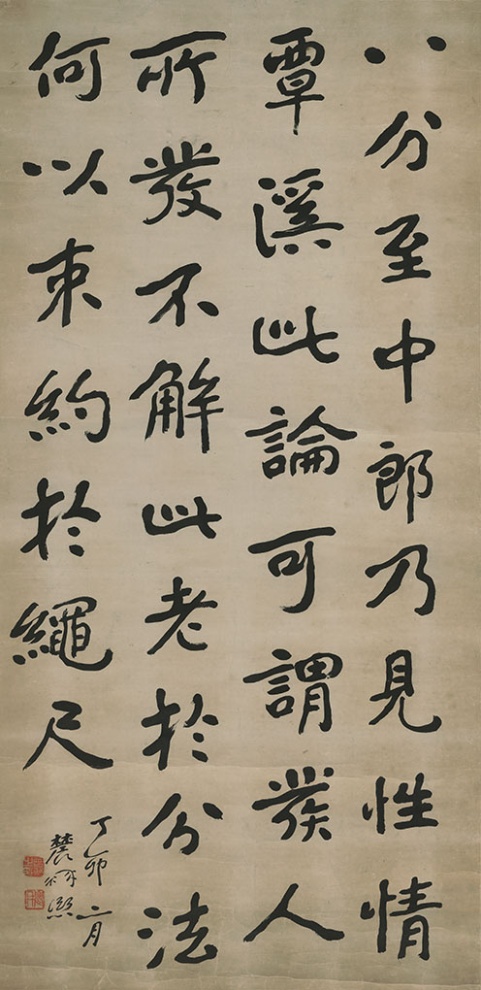 八分至中郎乃見性情
覃溪此論可謂發人
所發不解此老於分法
何以束約於繩尺
丁卯二月
農髯熙